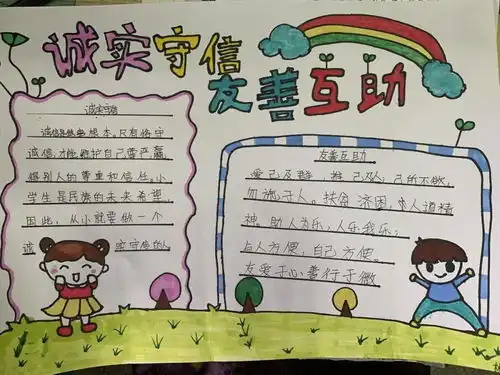 诚实守信
友善互助
诚实守信
诚信是做事根本。只有恪守
诚信,才能维护自己尊严,赢
得别人的尊重和信任。小
学生是民族的未来希望。
因此,从小就要做一个
诚 实守信的人
友善互助
爱己及群,推己及人;己所不欲,
勿施于人。扶贫济困,人道精
神。助人为乐;人乐我乐;
与人方便,自己方便。
友爱于心善行于微